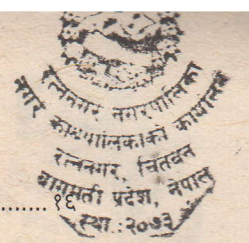 रत्ननगर नगरपालिका
नगर कार्यपालिकाको कार्यालय
रत्ननगर, चितवन
बागमती प्रदेश, नेपाल
....... १६
स्था.:२०७३